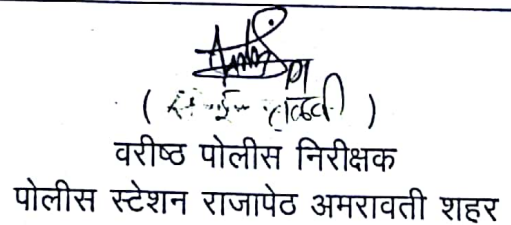 ( तळवी )
वरीष्ठ पोलीस निरीक्षक
पोलीस स्टेशन राजापेठ अमरावती शहर